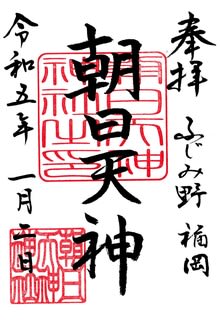 奉拝
ふじみ野 福岡
朝日天神
令和五年 一月二日